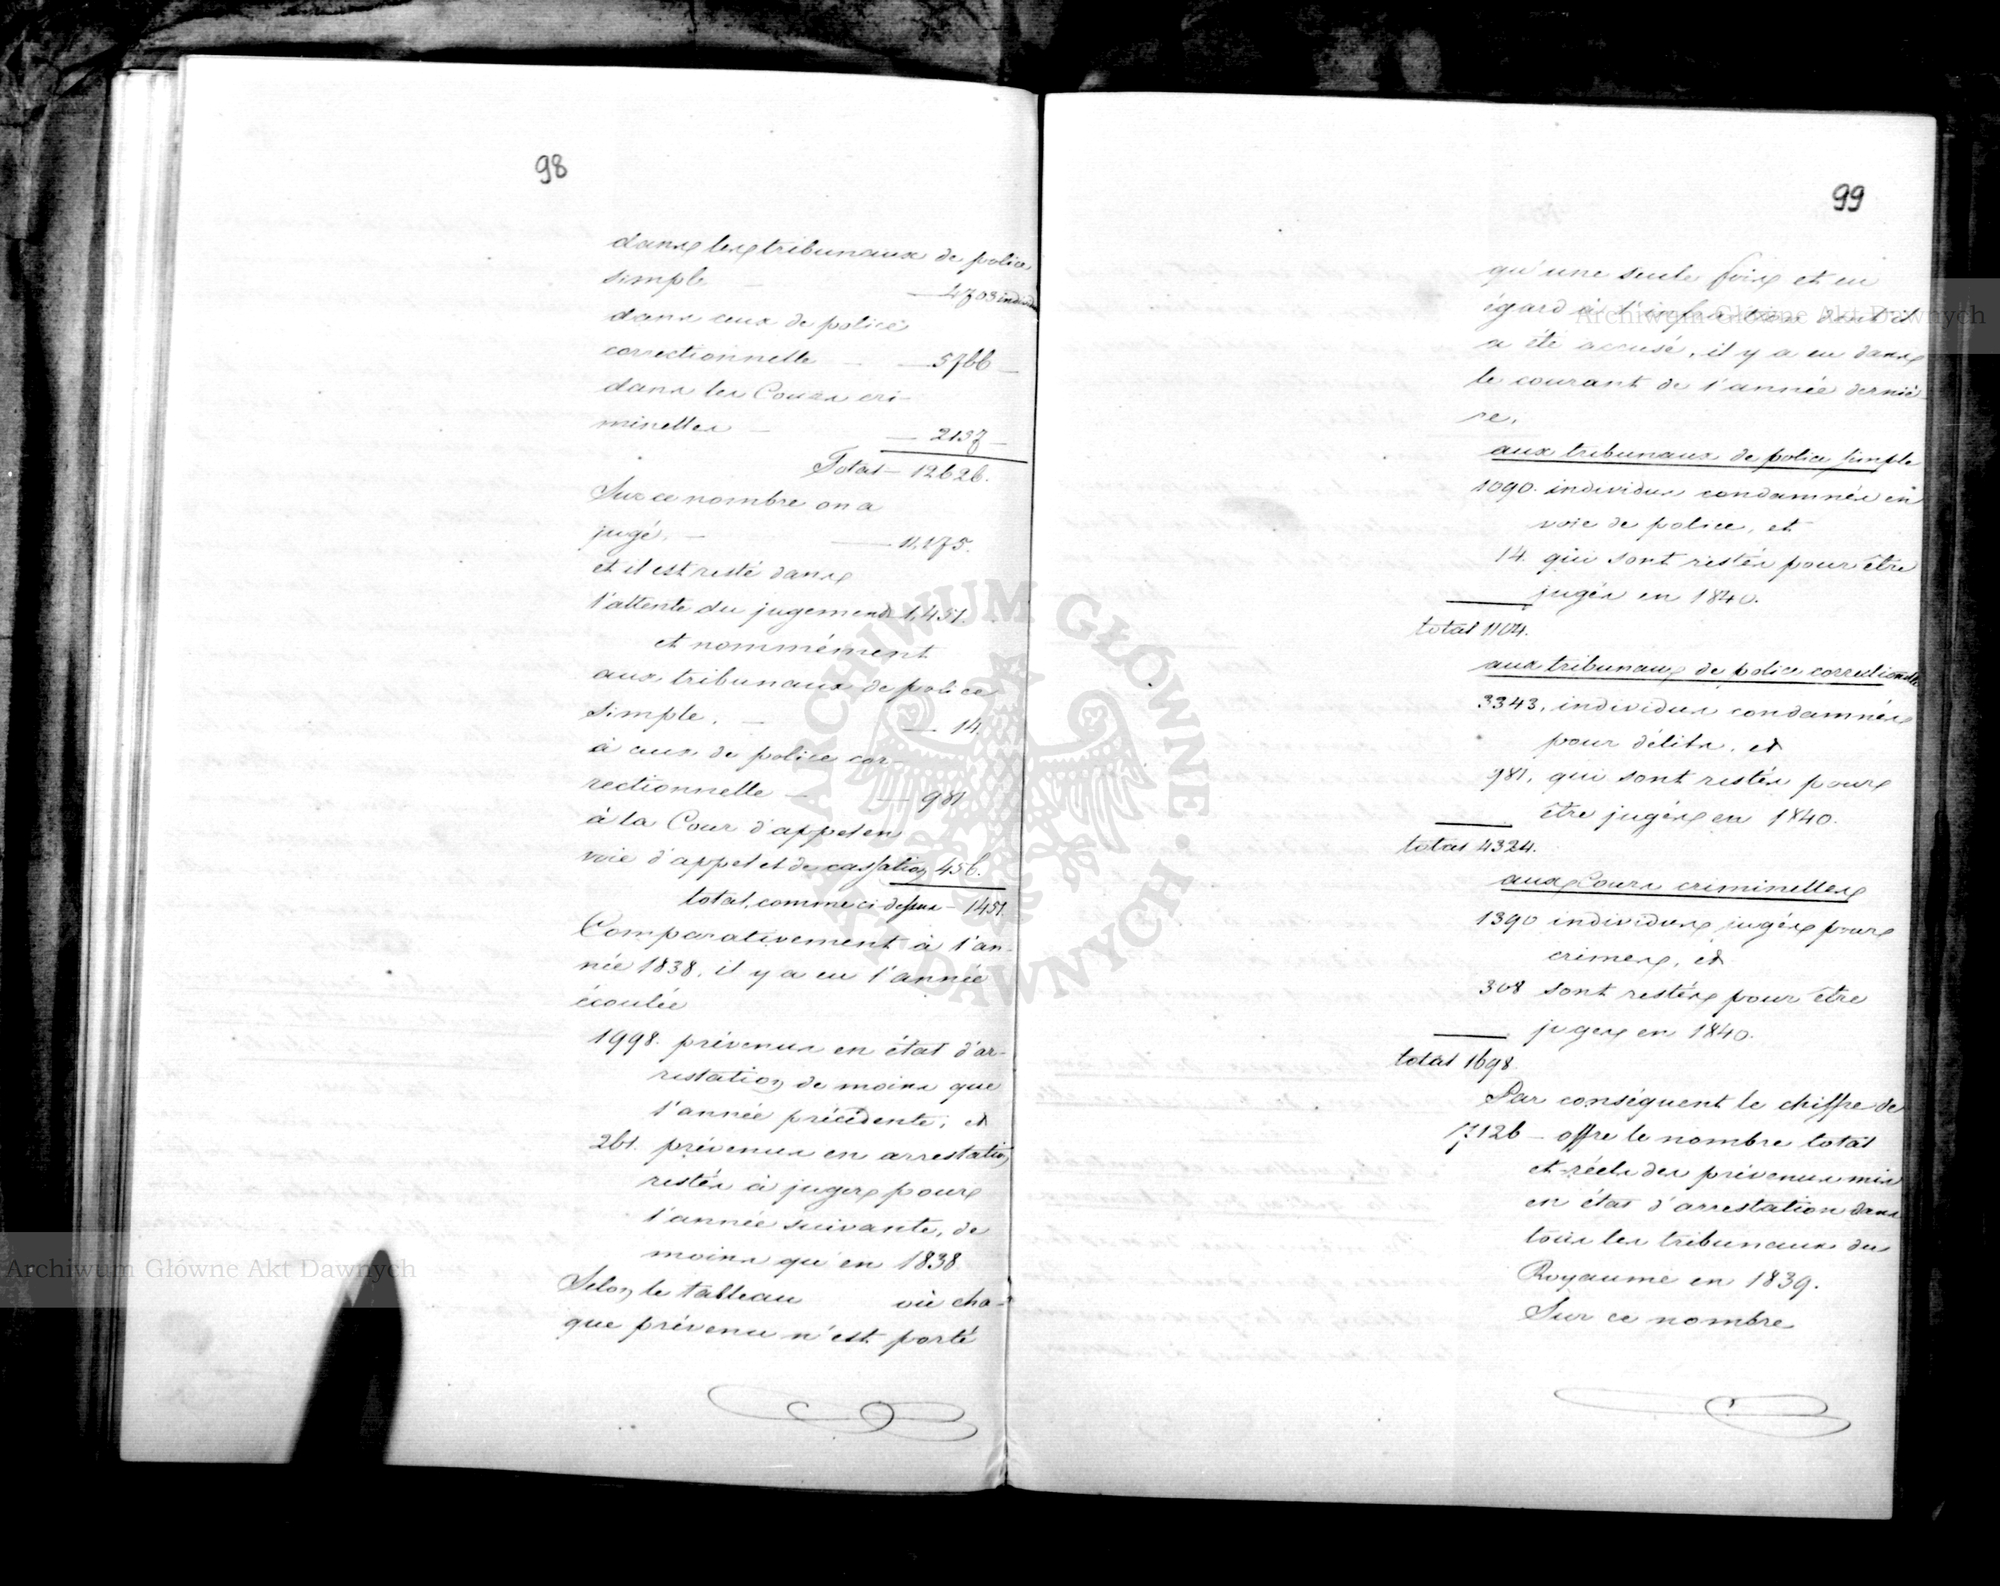 98
dans les tribunaux de police
simple — — 4703 individus
dans ceux de police
correctionnelle — — 5766 —
dans les Cours cri-
minelles — — 2157 —
Total — 12626.
Sur ce nombre on a
jugé, — — 11,175.
et il est resté dans
l'attente du jugement 1,451.
et nommément
aux tribunaux de police
simple. — — 14.
à ceux de police cor-
rectionnelle — — 981
à la Cour d'appel en
voie d'appel et de cassation 456.
total, comme ci-dessus — 1451.
Comparativement à l'an-
née 1838, il y a eu l'année
écoulée
1998. prévenus en état d'ar-
restation de moins que
l'année précédente, et
261. prévenus en arrestation
restés à juger pour
l'année suivante, de
moins qu'en 1838
Selon le tableau où cha-
que prévenu n'est porté
99
qu'une seule fois et eu
égard à l'infraction dont il
a été accusé, il y a eu dans
le courant de l'année derniè-
re,
aux tribunaux de police simple
1090. individus condamnés en
voie de police, et
14. qui sont restés pour être
jugés en 1840.
total 1104.
aux tribunaux de police correctionnelle
3343, individus condamnés
pour délits, et
981, qui sont restés pour
être jugés en 1840.
total 4324.
aux Cours criminelles
1390 individus jugés pour
crimes, et
308 sont restés pour être
juges en 1840.
total 1698.
Par conséquent le chiffre de
7,126 — offre le nombre total
et réels des prévenus mis
en état d'arrestation dans
tous les tribunaux du
Royaume en 1839.
Sur ce nombre
Archiwum Główne Akt Dawnych
Archiwum Główne Akt Dawnych
ARCHIWUM GŁÓWNE AKT DAWNYCH